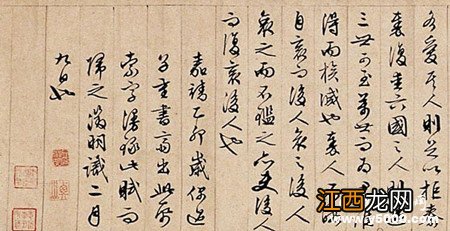 各愛其人則足以拒秦
秦復愛六國之人
三世可至萬世而為
得而族滅也秦人不
自哀而後人哀之後人
哀之而不鑑之亦使後人
而復哀後人也
嘉靖乙卯歲偶過
子重書齋出此
索字漫錄此賦而
歸之徵明識二月
九日也
江西龙网